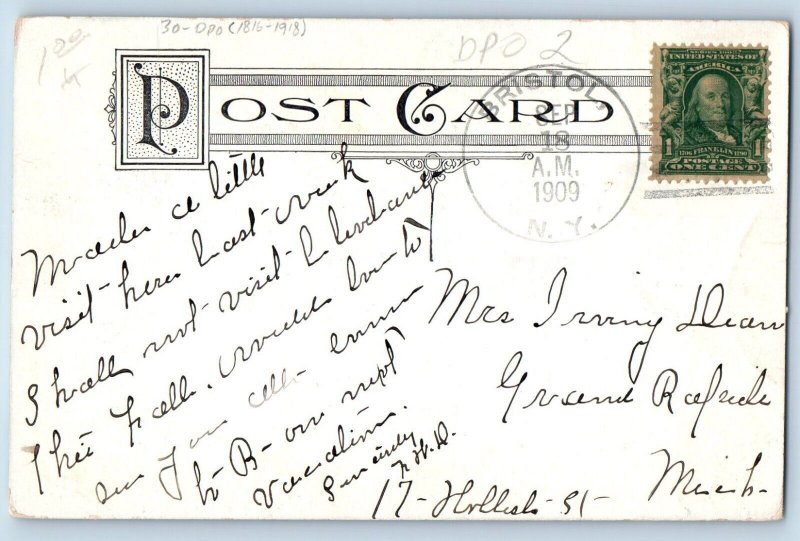 30-DPO (1816-1918)
DPO 2
POST CARD
BRISTOL,
SEP
18
A.M.
1909
N. Y.
UNITED STATES OF
AMERICA
1706 FRANKLIN 1790
1 1
POSTAGE
ONE CENT
a little
visit here last week
I shall not visit
this Fall. would love to
see you all
to B- our next
Vacation.
Sincerely
Mrs Irving Dean
Grand Rapids
17- Hollister St- Mich-